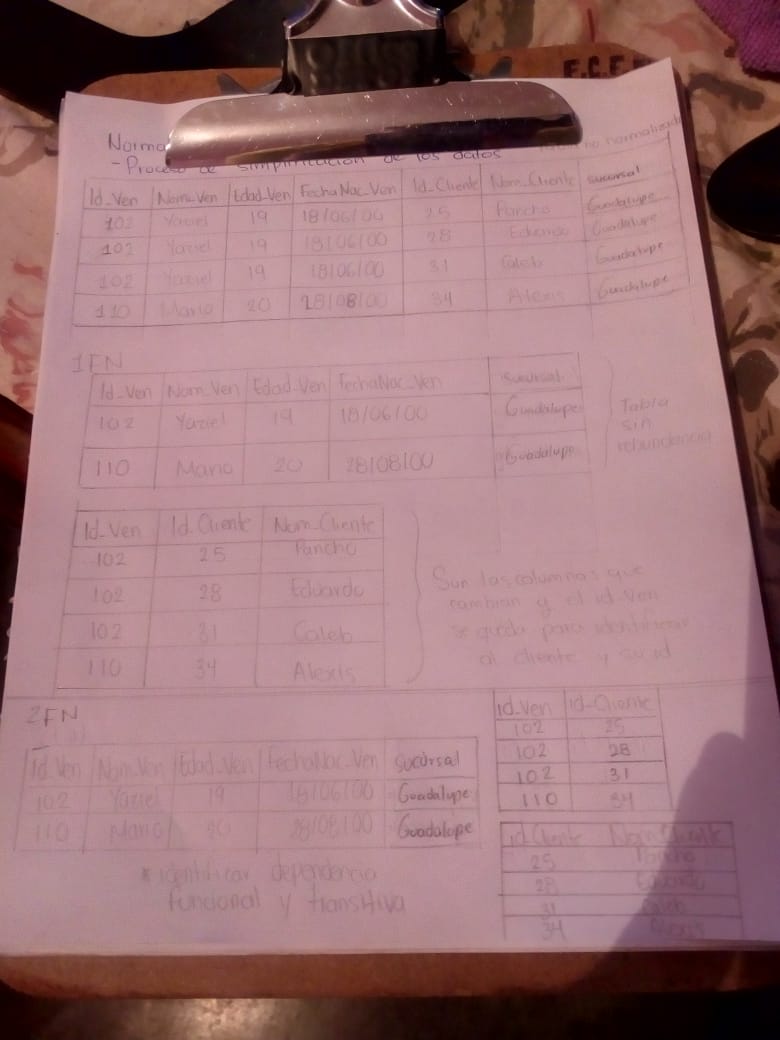 E.C.F.
Norma
- Proceso de simplificación de los datos
no normalizada
Id_Ven Nom_Ven Edad_Ven FechaNac_Ven Id_Cliente Nom_Cliente sucursal
102 Yaziel 19 18/06/00 25 Pancho Guadalupe
102 Yaziel 19 18/06/00 28 Eduardo Guadalupe
102 Yaziel 19 18/06/00 31 Caleb Guadalupe
110 Mario 20 28/08/00 34 Alexis Guadalupe
1FN
Id_Ven Nom_Ven Edad_Ven FechaNac_Ven sucursal
102 Yaziel 19 18/06/00 Guadalupe
110 Mario 20 28/08/00 Guadalupe
Tabla
sin
redundancia
Id_Ven Id_Cliente Nom_Cliente
102 25 Pancho
102 28 Eduardo
102 31 Caleb
110 34 Alexis
Son las columnas que
cambian y el id_ven
se queda para identificar
al cliente y su id
2FN
Id_Ven Nom_Ven Edad_Ven FechaNac_Ven sucursal
102 Yaziel 19 18/06/00 Guadalupe
110 Mario 20 28/08/00 Guadalupe
* identificar dependencia
funcional y transitiva
id_Ven id_Cliente
102 25
102 28
102 31
110 34
id_Cliente Nom_Cliente
25 Pancho
28 Eduardo
31 Caleb
34 Alexis